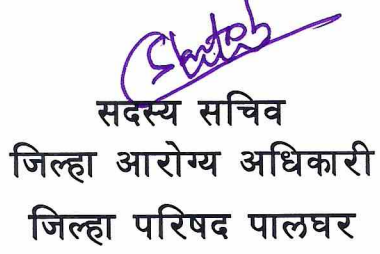 सदस्य सचिव
जिल्हा आरोग्य अधिकारी
जिल्हा परिषद पालघर